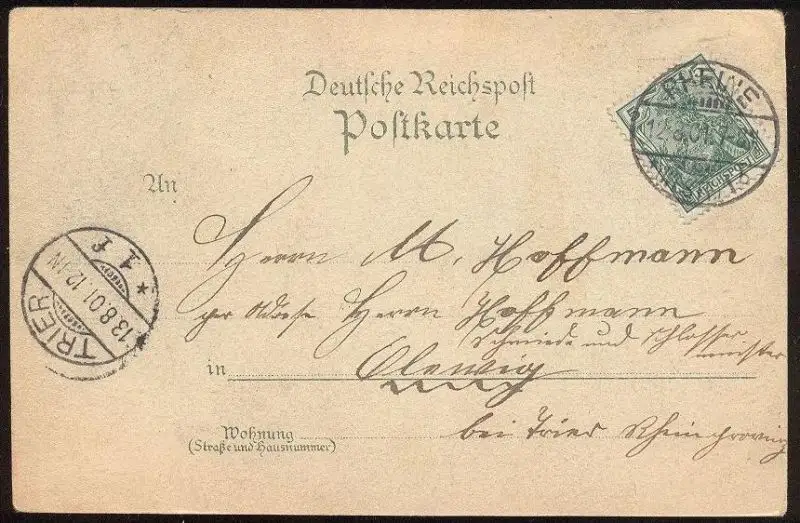 Deutsche Reichspost
Postkarte
RHEINE
12.8.01. 7-8N
REICHSPOST
An
Herrn M. Hoffmann
per Adresse Herrn Hoffmann
Schmiede und Schlosser
meister
in Olewig
Wohnung
(Straße und Hausnummer)
bei Trier Rheinprovinz
TRIER
13.8.01.12-1N
* 1 f